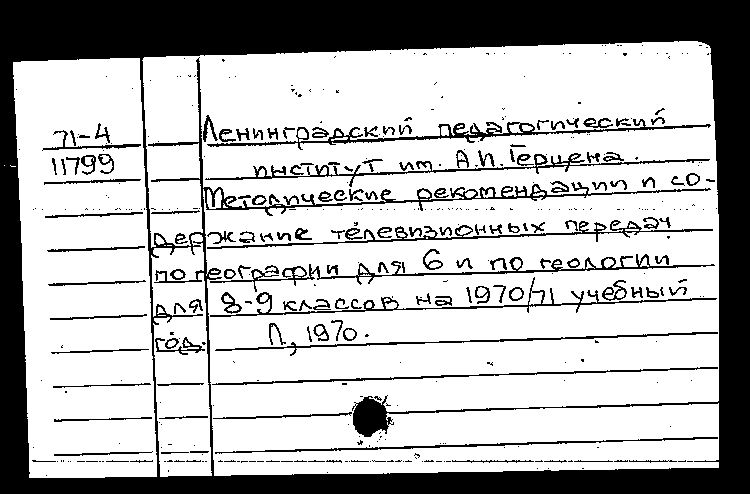 71-4 Ленинградский педагогический
11799 институт им. А.И. Герцена.
Методические рекомендации и со-
держание телевизионных передач
по географии для 6 и по геологии
для 8-9 классов на 1970/71 учебный
год. Л., 1970.